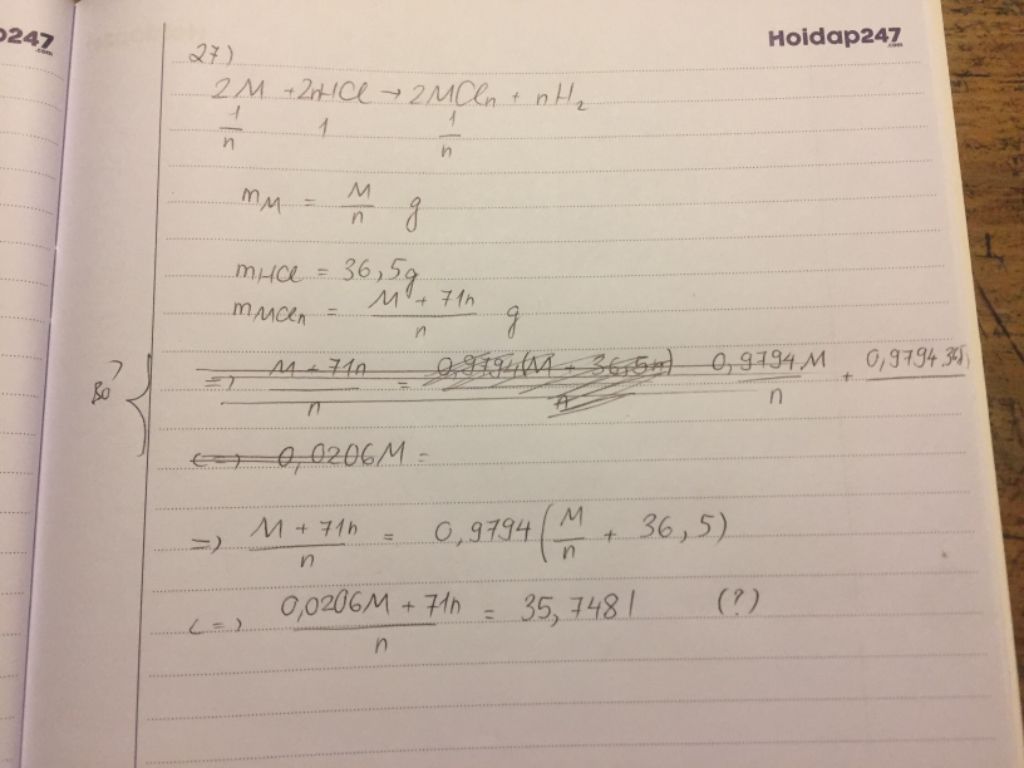 247
.com
Hoidap247
.com
27)
2M + 2nHCl → 2MCln + nH2
1/n 1 1/n
mM = M/n g
mHCl = 36,5g
mMCln = (M + 71n)/n g
Bỏ
=> (M + 71n)/n = 0,9794(M + 36,5n)/n 0,9794M/n + 0,9794.36,5
<=> 0,0206M =
=> (M + 71n)/n = 0,9794(M/n + 36,5)
<=> (0,0206M + 71n)/n = 35,7481 (?)